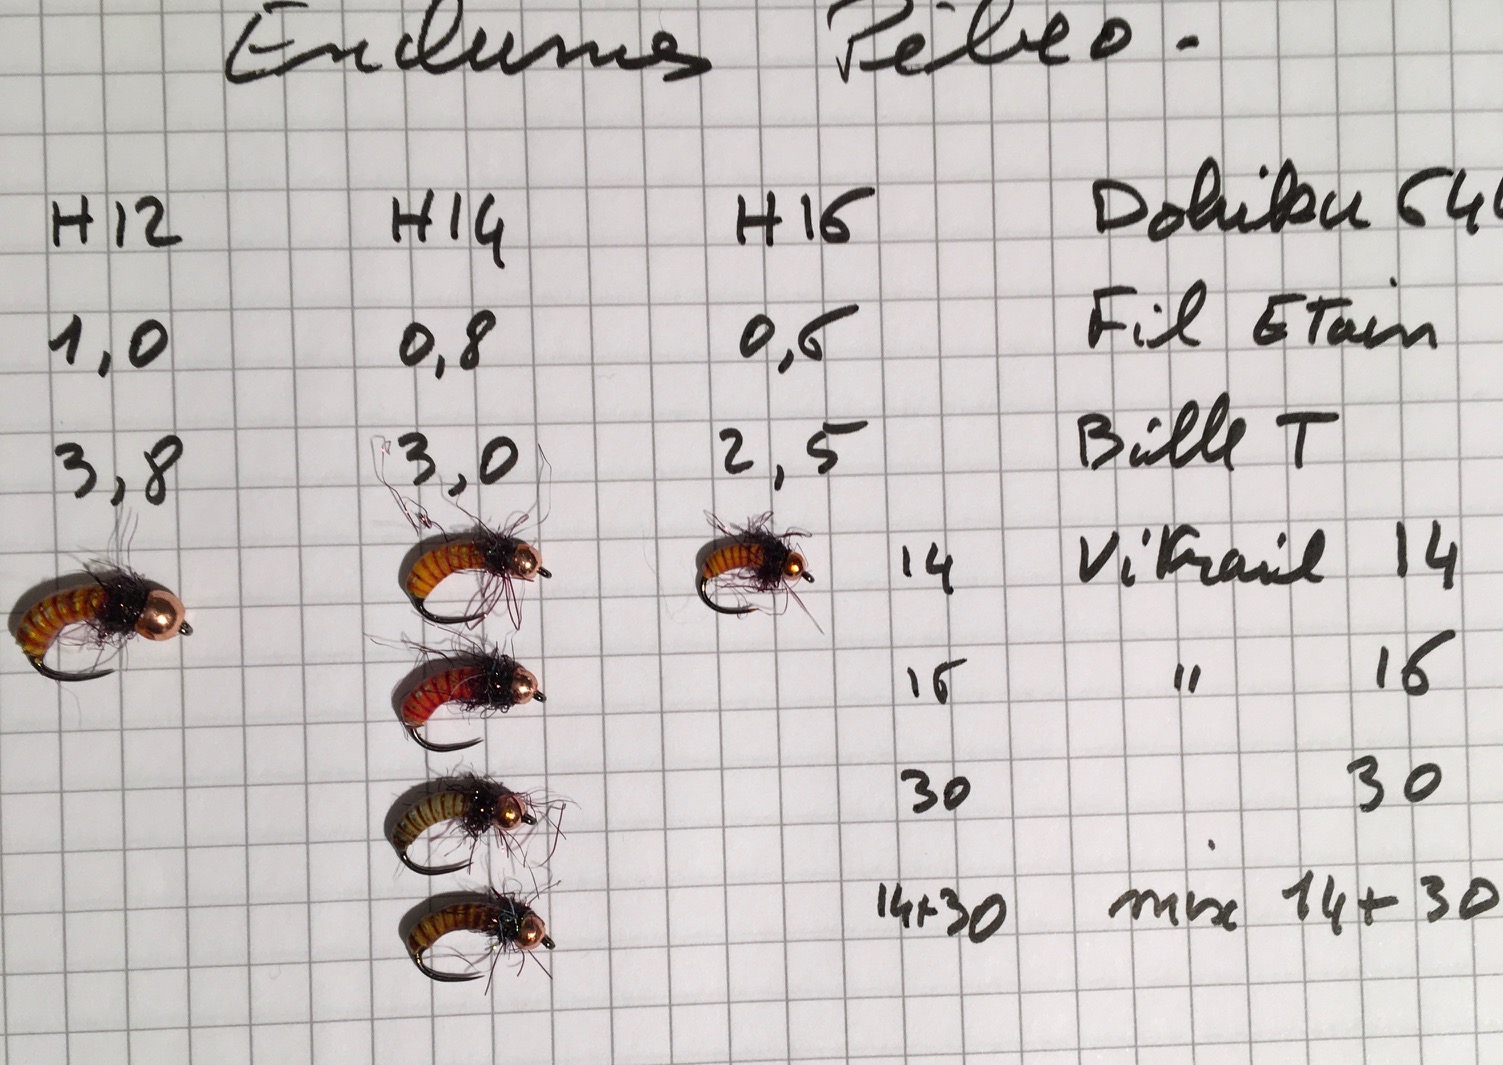 Endumes Pébéo.
H12 H14 H16 Dohiku 644
1,0 0,8 0,6 Fil Etain
3,8 3,0 2,5 Bille T
14 Vitrail 14
16 " 16
30 30
14+30 mix 14+30